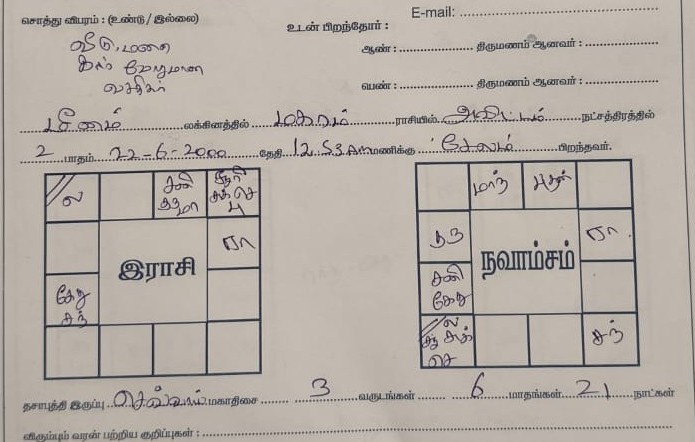 சொத்து விபரம் : (உண்டு / இல்லை)
E-mail:
உடன் பிறந்தோர் :
வீடு, மனை
ஆண் : திருமணம் ஆனவர் :
வசதிகள்
பெண் : திருமணம் ஆனவர் :
மீனம் லக்கினத்தில் மகரம் ராசியில் அவிட்டம் நட்சத்திரத்தில்
2 பாதம் 22-6-2000 தேதி 12.53 Am மணிக்கு சேலம் பிறந்தவர்.
ல சனி குரு மா சூரி சுக் செ பு
ரா
இராசி
கேது சந்
மாந் புதன்
குரு ரா
நவாம்சம்
சனி கேது
ல சூ சுக் செ சந்
தசாபுத்தி இருப்பு செவ்வாய் மகாதிசை 3 வருடங்கள் 6 மாதங்கள் 21 நாட்கள்
விரும்பும் வரன் பற்றிய குறிப்புகள் :